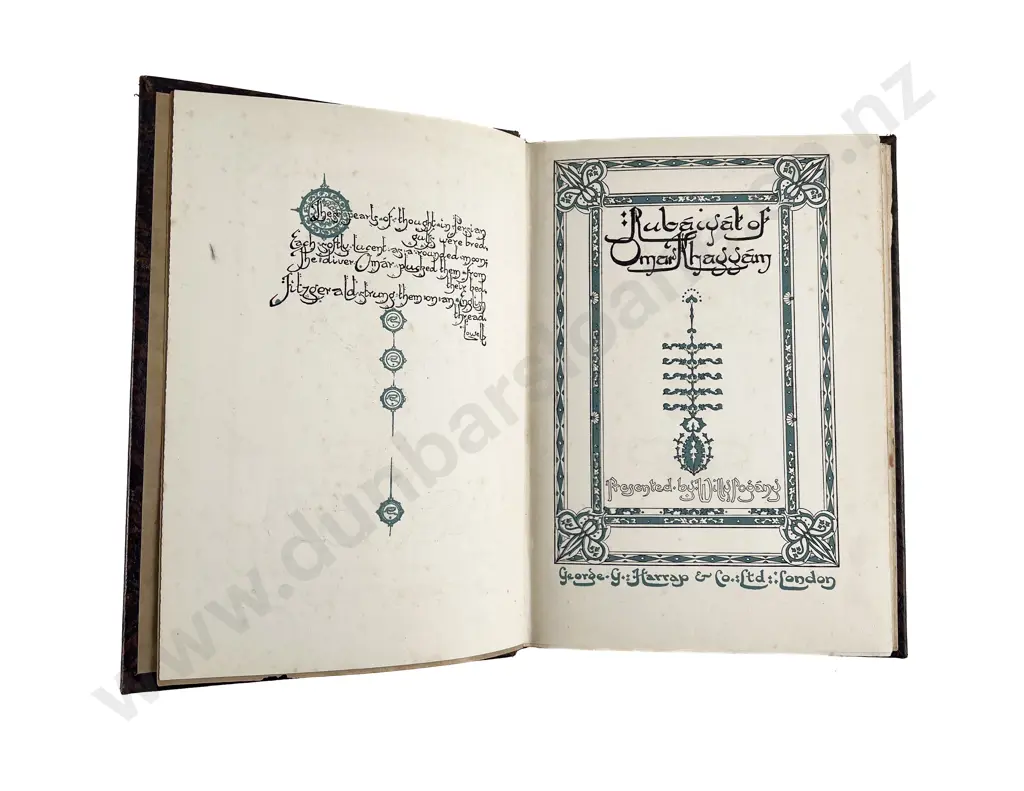 These·pearls·of·thought·in·Persian
gulfs were bred,
Each·softly·lucent·as·a·rounded·moon;
The·diver·Omár·plucked·them·from
their·bed,
Fitzgerald·strung·them·on·an·English
thread.
Lowell
:Rubáiyát of
Omár Khayyám
Presented·by·Willy Pogány
George·G.:Harrap & Co.:Ltd.:London
www.dunbarsloane.co.nz